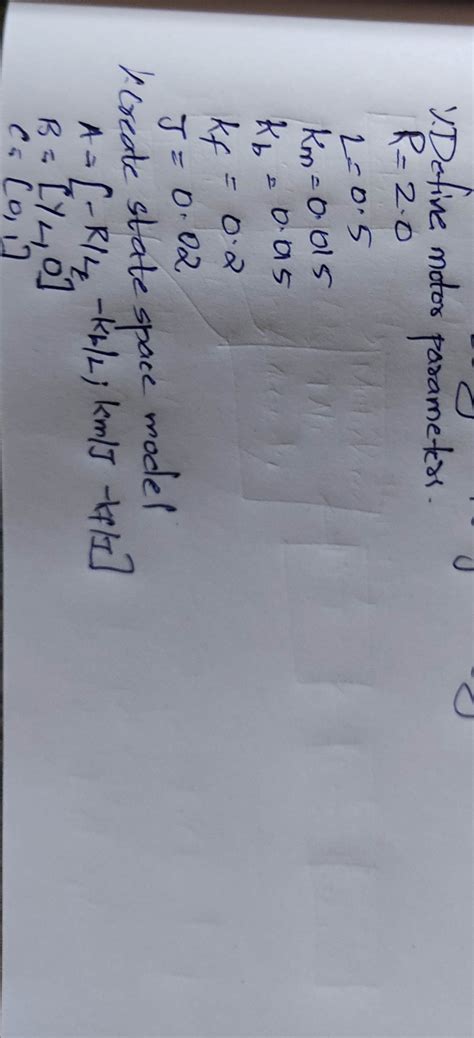 %Define motor parameters.
R=2.0
L=0.5
km=0.015
kb=0.015
kf=0.2
J=0.02
%Create state space model
A=[-R/L -kb/L; km/J -kf/J]
B=[1/L, 0]
C=[0, 1]